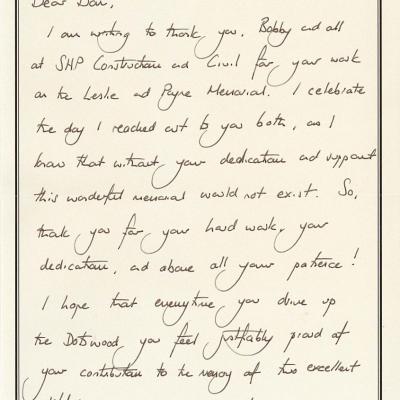 Dear Dan,
I am writing to thank you, Bobby and all
at SHP Construction and Civil for your work
on the Leslie and Payne Memorial. I celebrate
the day I reached out to you both, as I
know that without your dedication and support
this wonderful memorial would not exist. So,
thank you for your hard work, your
dedication, and above all your patience!
I hope that everytime you drive up
the Dotswood, you feel justifiably proud of
your contribution to the memory of two excellent